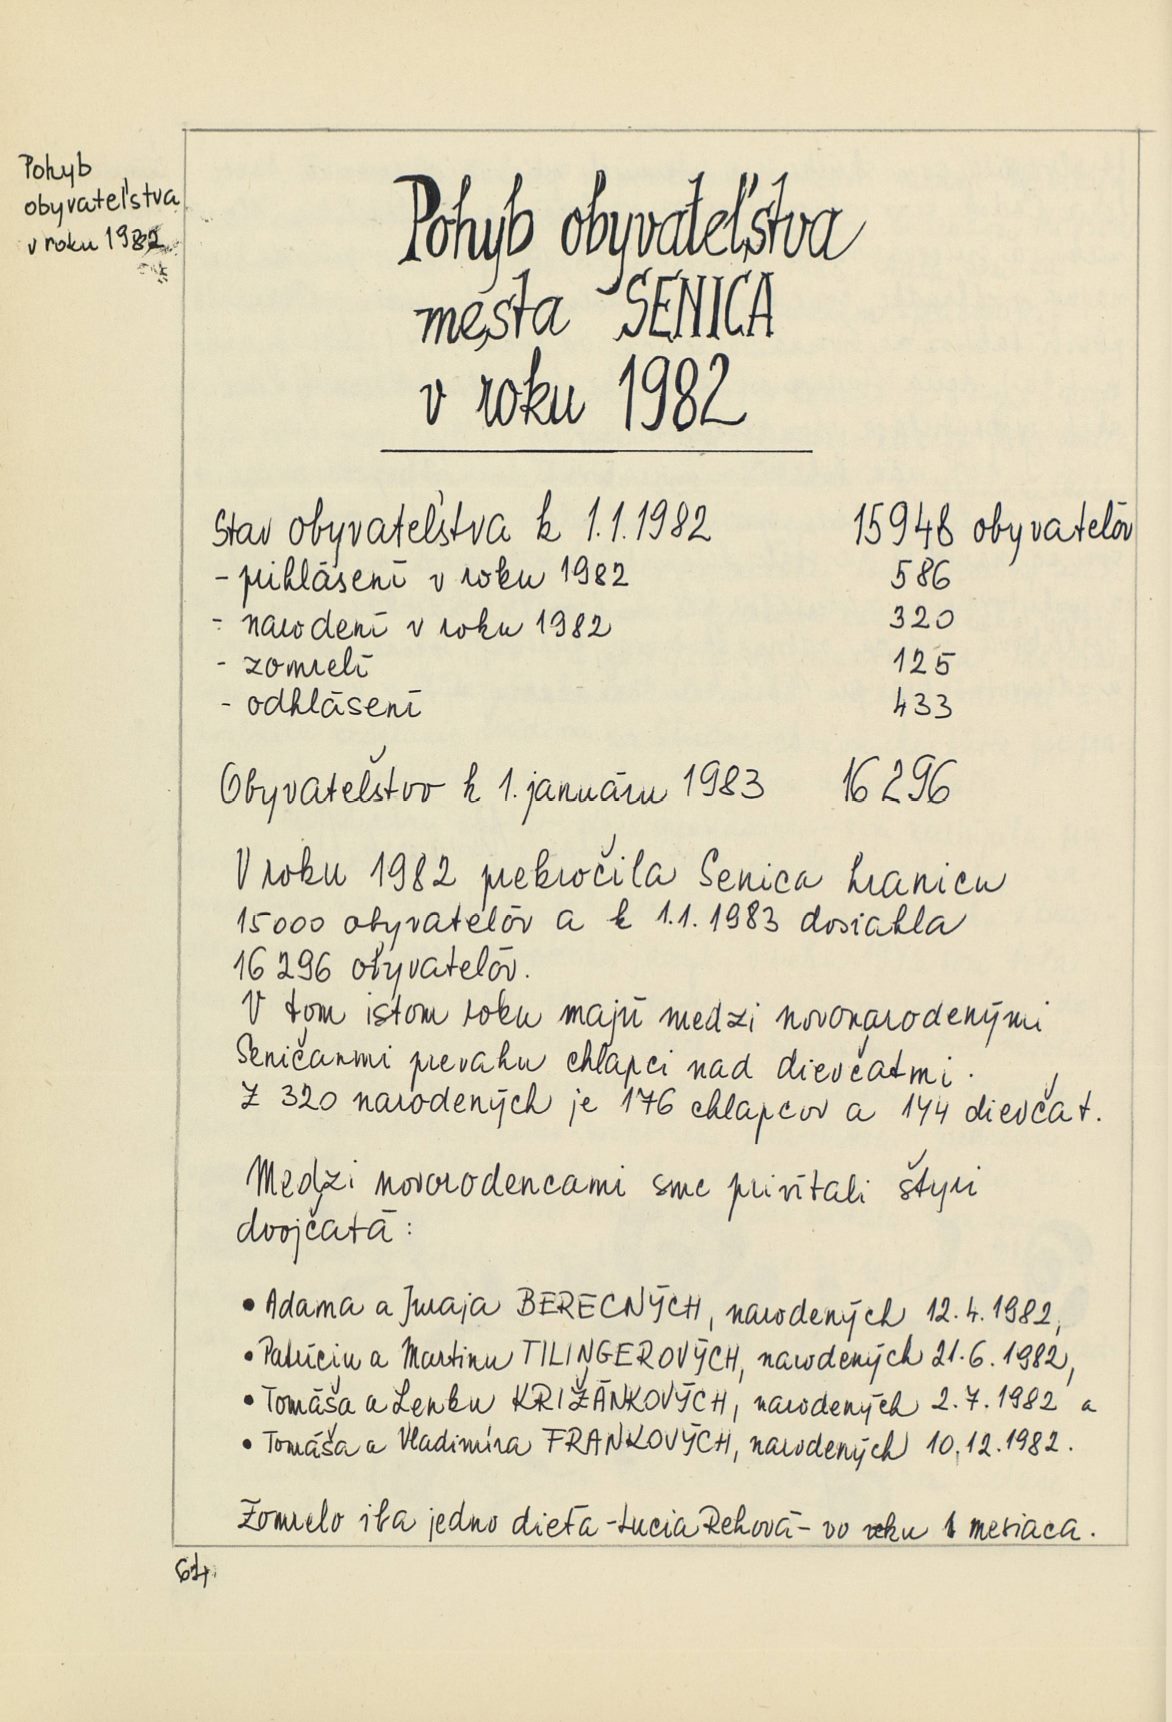 Pohyb
obyvateľstva
v roku 1982
Pohyb obyvateľstva
mesta SENICA
v roku 1982
Stav obyvateľstva k 1.1.1982 15948 obyvatelōv
- prihlāsenī v roku 1982 586
- narodenī v roku 1982 320
- zomrelī 125
- odhlāsenī 433
Obyvateľstvo k 1. januāru 1983 16 296
V roku 1982 prekročila Senica hranicu
15000 obyvatelōv a k 1.1.1983 dosiahla
16 296 obyvatelōv.
V tom istom roku majū medzi novonarodenými
Seničanmi prevahu chlapci nad dievčatmi.
Z 320 narodených je 176 chlapcov a 144 dievčat.
Medzi novorodencami sme privītali štyri
dvojčatā:
• Adama a Juraja BERECNÝCH, narodených 12.4.1982,
• Patrīciu a Martinu TILINGEROVÝCH, narodených 21.6.1982,
• Tomāša a Lenku KRIŽĀNKOVÝCH, narodených 2.7.1982 a
• Tomāša a Vladimīra FRANKOVÝCH, narodených 10.12.1982.
Zomrelo iba jedno dieťa - Lucia Rehovā - vo veku 1 mesiaca.
64